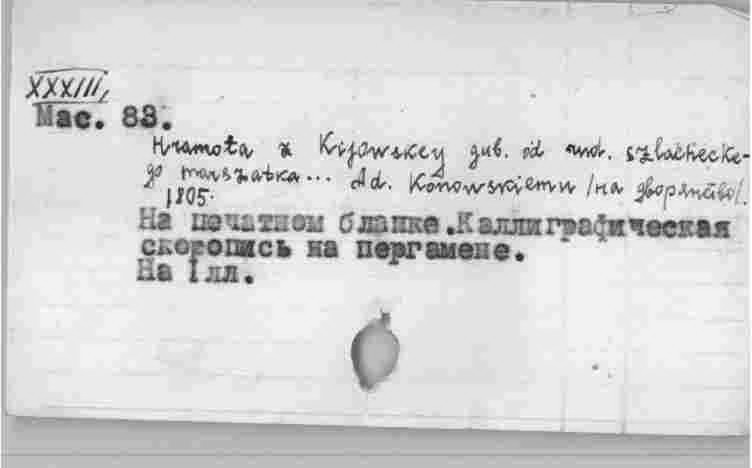 XXXIII,
Мас. 83.
Hramota z Kijowskey gub. od szlachecke-
go marszałka... Ad. Konowskiemu /на дворянство/.
1805.
На печатном бланке.Каллиграфическая
скоропись на пергамене.
На I лл.